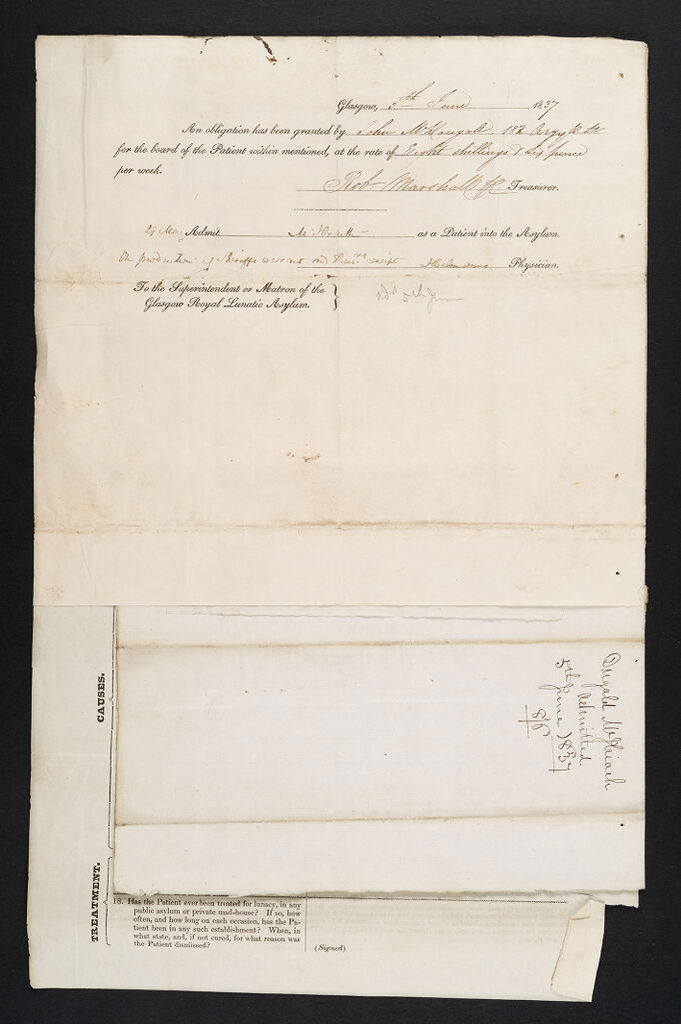 Glasgow, 5th June 1837
An obligation has been granted by John McDougall, 182 Argyll St
for the board of the Patient within mentioned, at the rate of Eight shillings & six pence
per week.
Robt Marshall Treasurer.
29 May Admit as a Patient into the Asylum.
On production of Sheriffs warrant and Physician.
To the Superintendent or Matron of the
Glasgow Royal Lunatic Asylum.
5th June
Dugald
Admitted
5th June 1837
8/6
CAUSES.
TREATMENT.
18. Has the Patient ever been treated for lunacy, in any
public asylum or private mad-house? If so, how
often, and how long on each occasion, has the Pa-
tient been in any such establishment? When, in
what state, and, if not cured, for what reason was
the Patient dismissed?
(Signed)